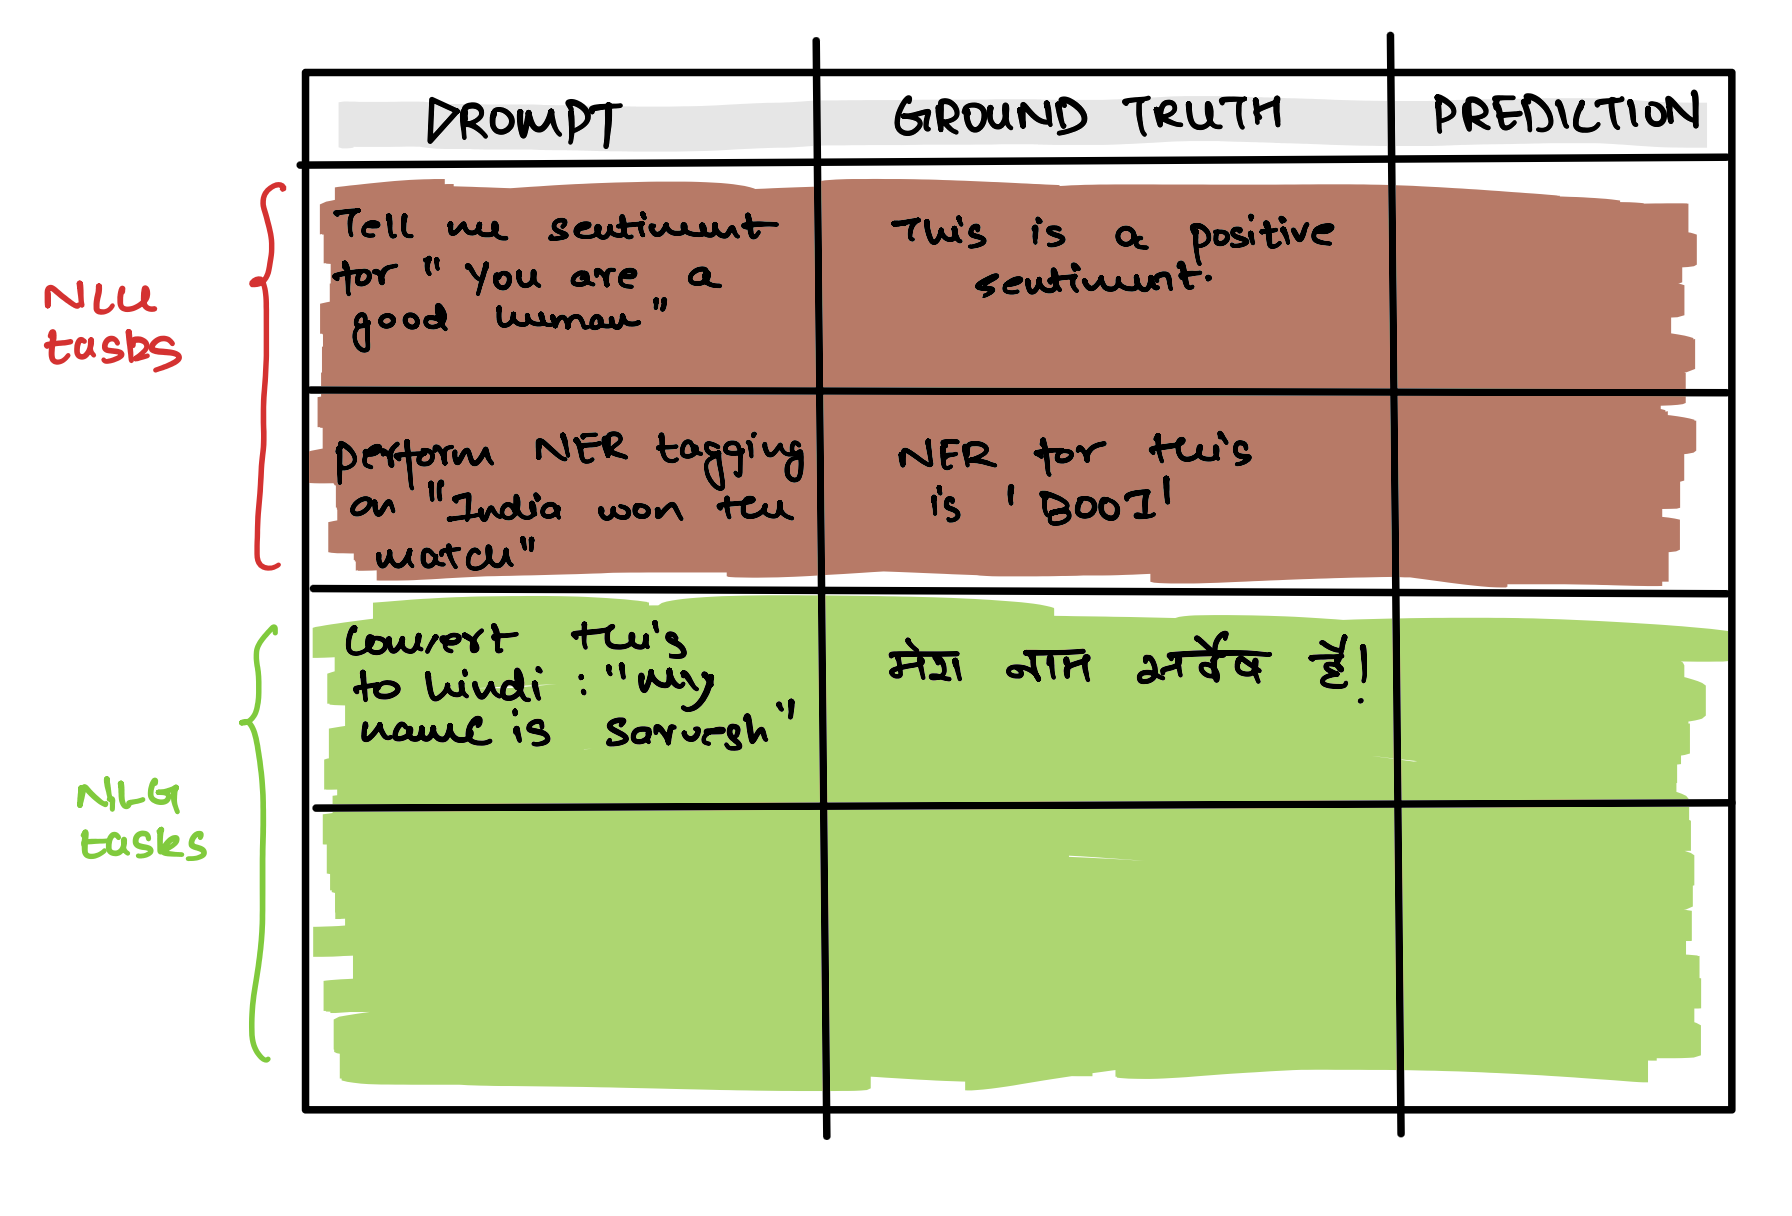 PROMPT
GROUND TRUTH
PREDICTION
NLU
tasks
Tell me sentiment
for "You are a
good human"
This is a positive
sentiment.
perform NER tagging
on "India won the
match"
NER for this
is 'BOOI'
NLG
tasks
Convert this
to hindi : "My
name is Sarvesh"
मेरा नाम है!